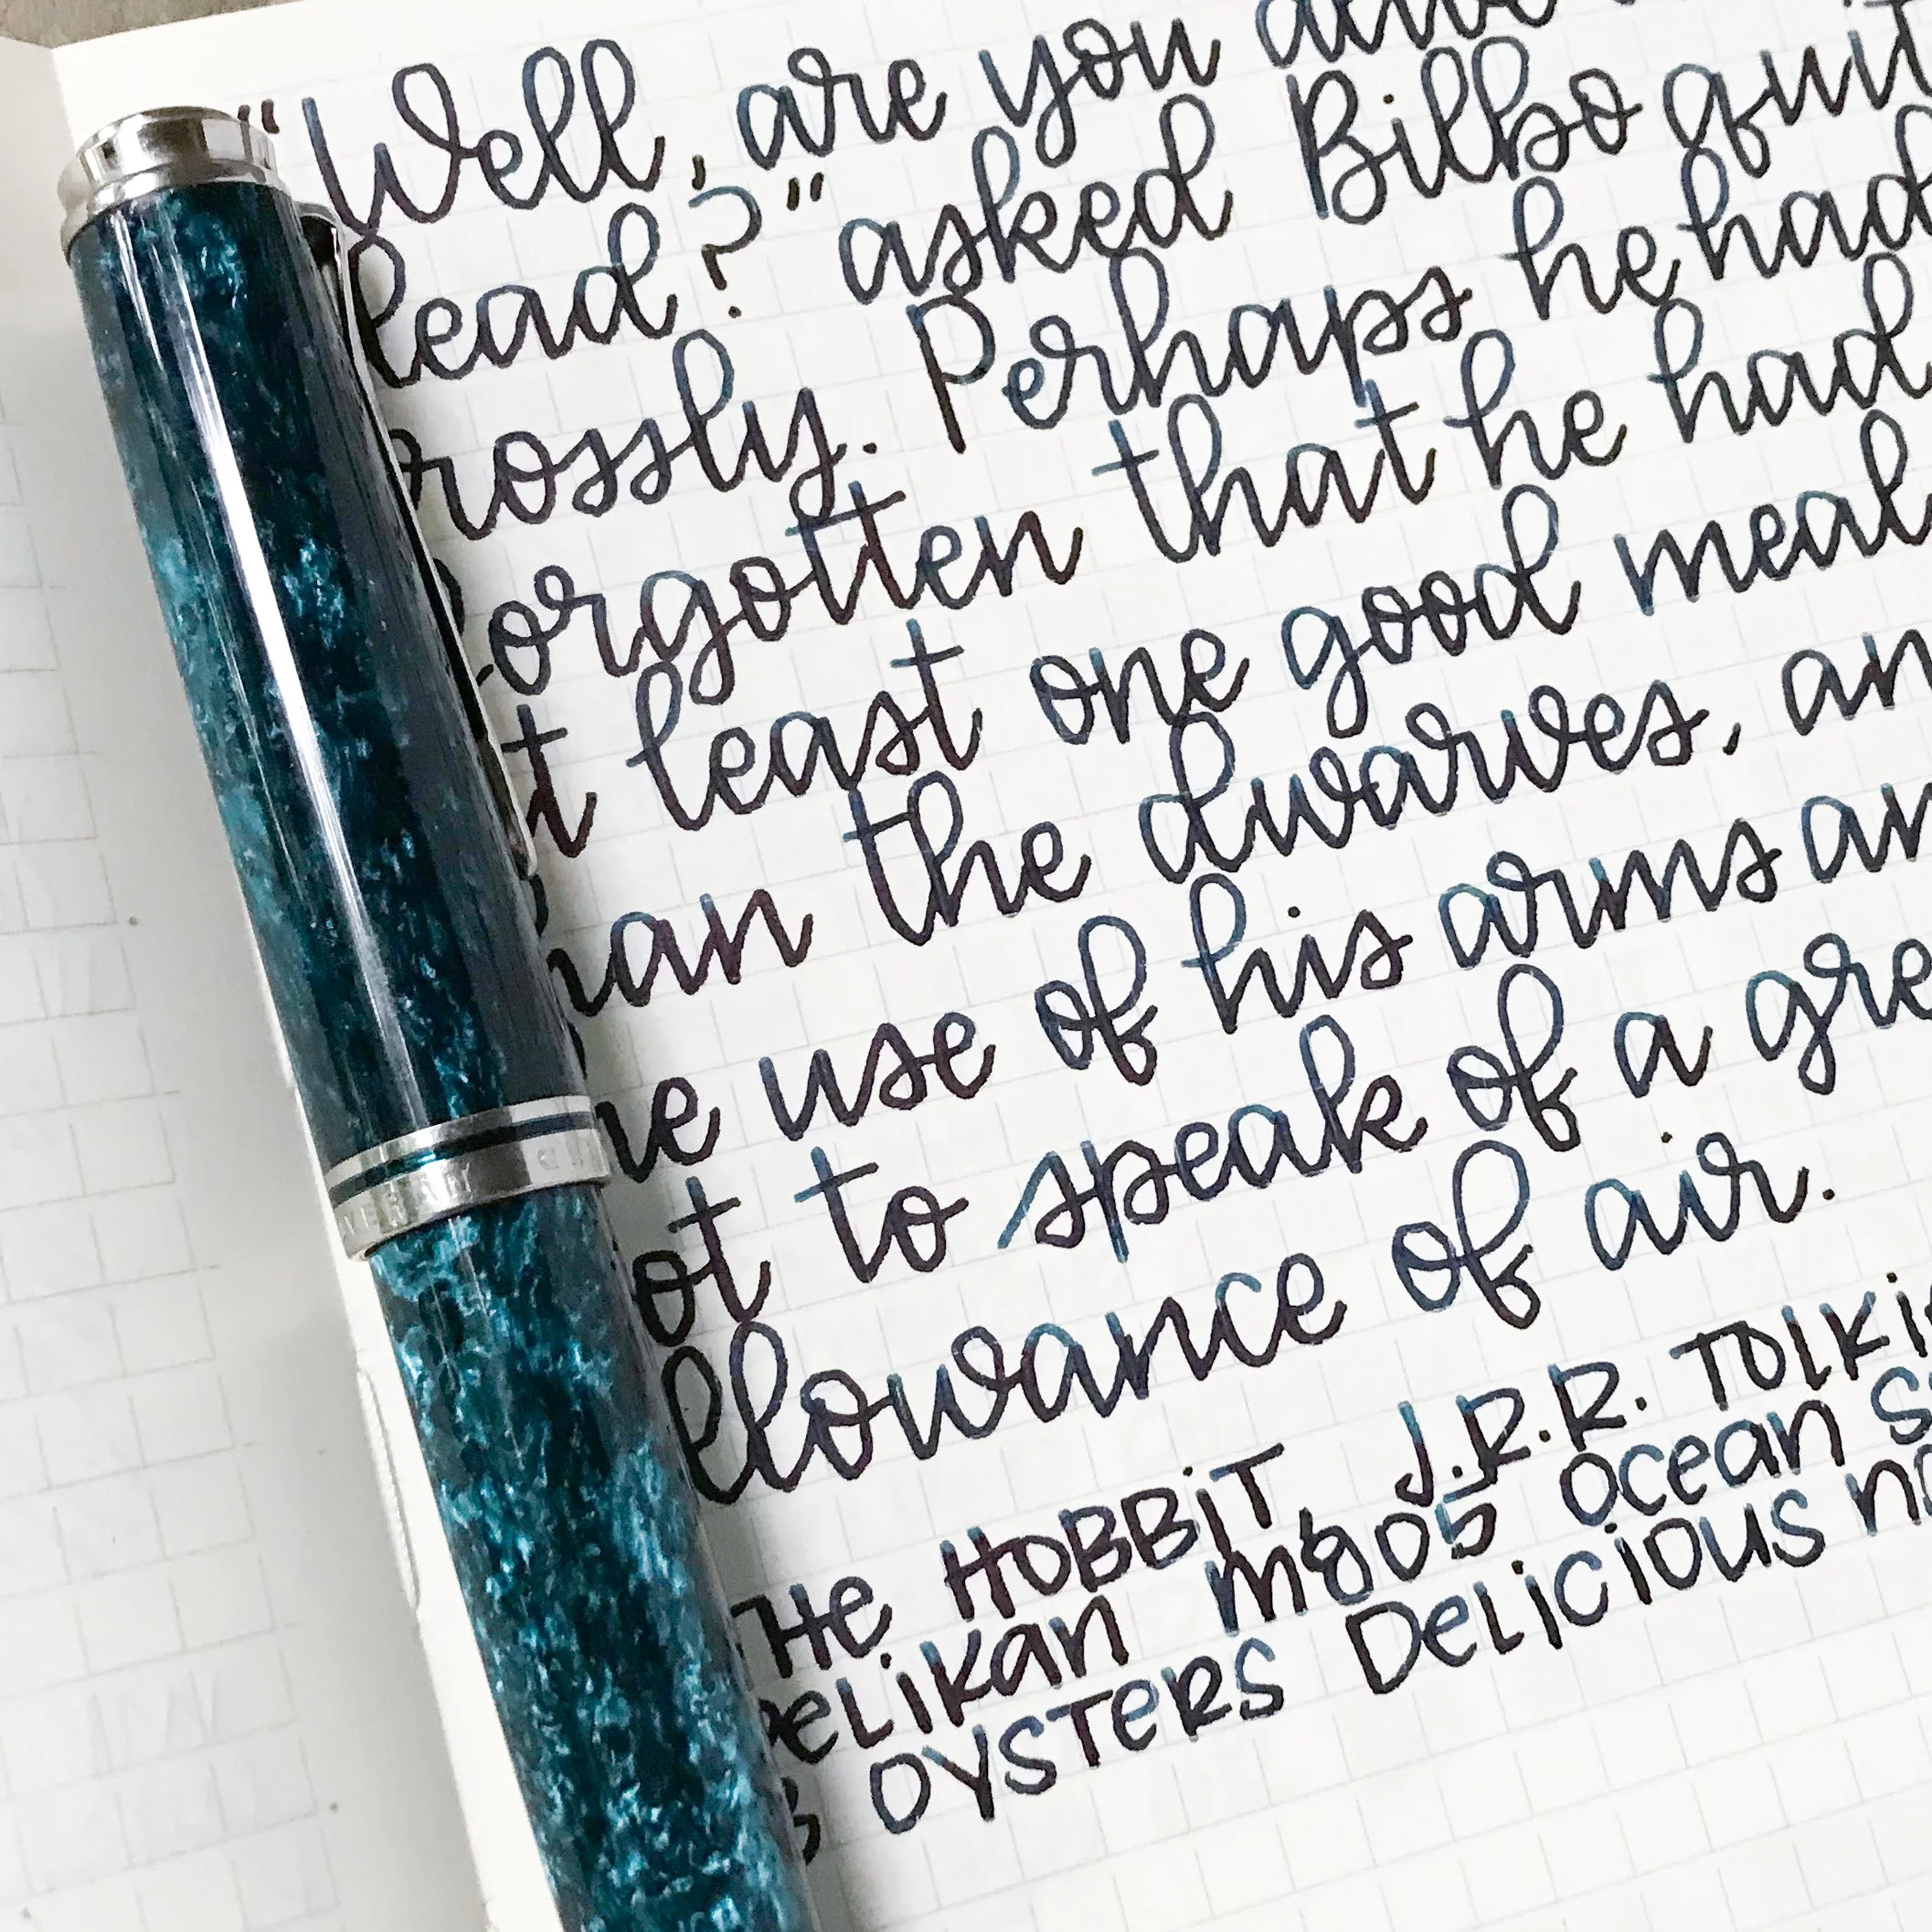 "Well, are you
lead?" asked Bilbo
rossly. Perhaps he had
orgotten that he had
t least one good meal
han the dwarves, an
he use of his arms an
ot to speak of a gre
llowance of air.
The HOBBiT J.R.R. TOLKi
PeLiKan m805 Ocean S
3 OYSTERS DeLiCiOUS